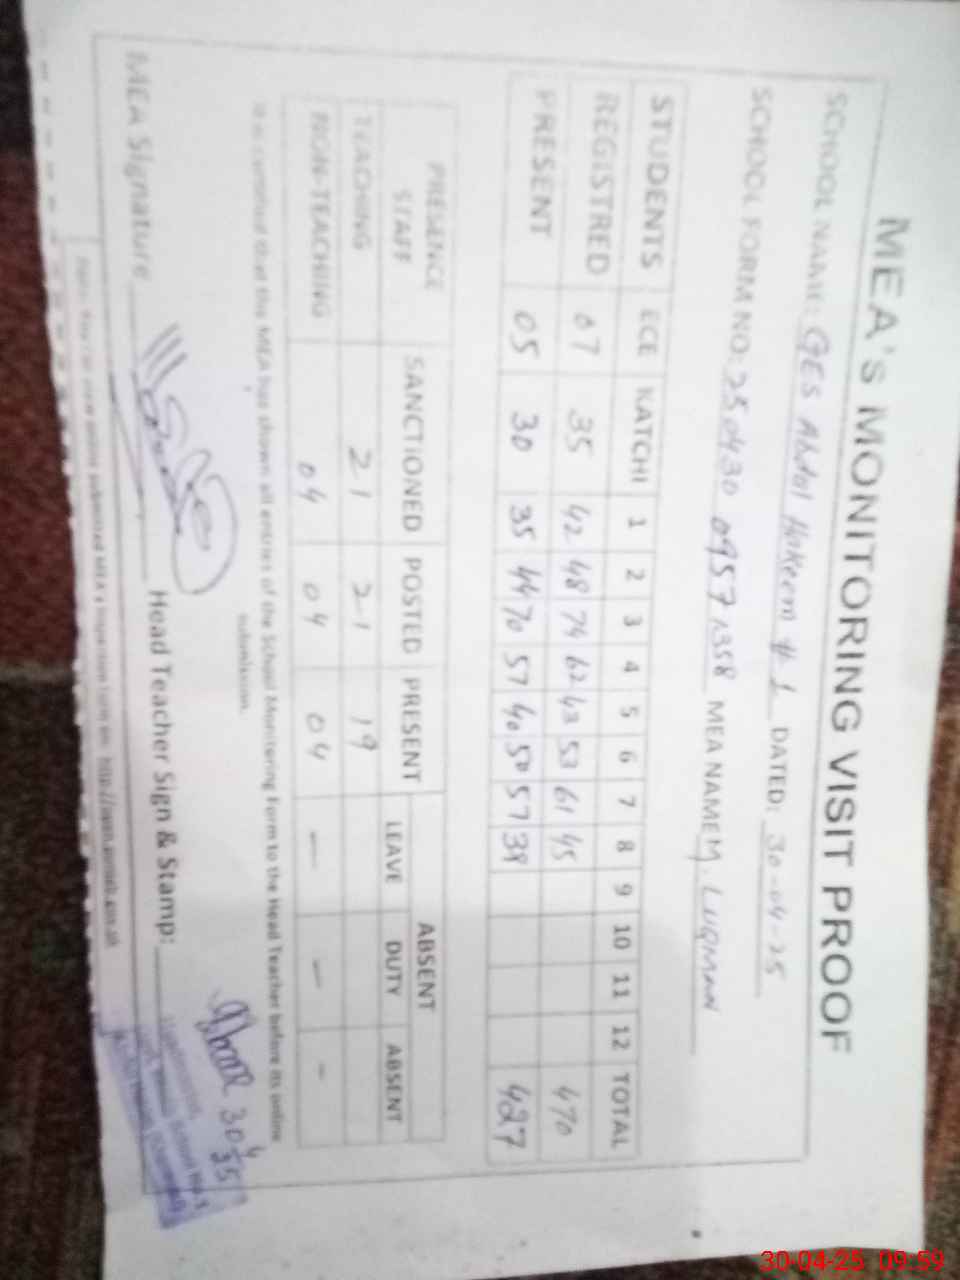 MEA's MONITORING VISIT PROOF
SCHOOL NAME: GES Abdul Hakeem # 1 DATED: 30-04-25
SCHOOL FORM NO: 250430 0957 1358 MEA NAME M. LUQMAN
STUDENTS ECE KATCHI 1 2 3 4 5 6 7 8 9 10 11 12 TOTAL
REGISTRED 07 35 42 48 74 62 43 53 61 45 470
PRESENT 05 30 35 44 70 57 40 50 57 39 427
PRESENCE STAFF SANCTIONED POSTED PRESENT ABSENT
LEAVE DUTY ABSENT
TEACHING 21 21 19
NON-TEACHING 04 04 04 — — -
It is certified that the MEA has shown all entries of the School Monitoring Form to the Head Teacher before its online
submission.
MEA Signature Head Teacher Sign & Stamp:
30-04-25 09:59